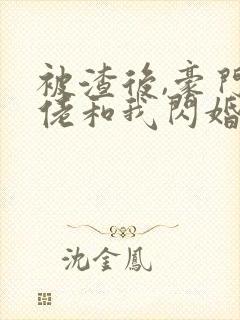 被渣後,豪門
佬和我閃婚
沈金鳳